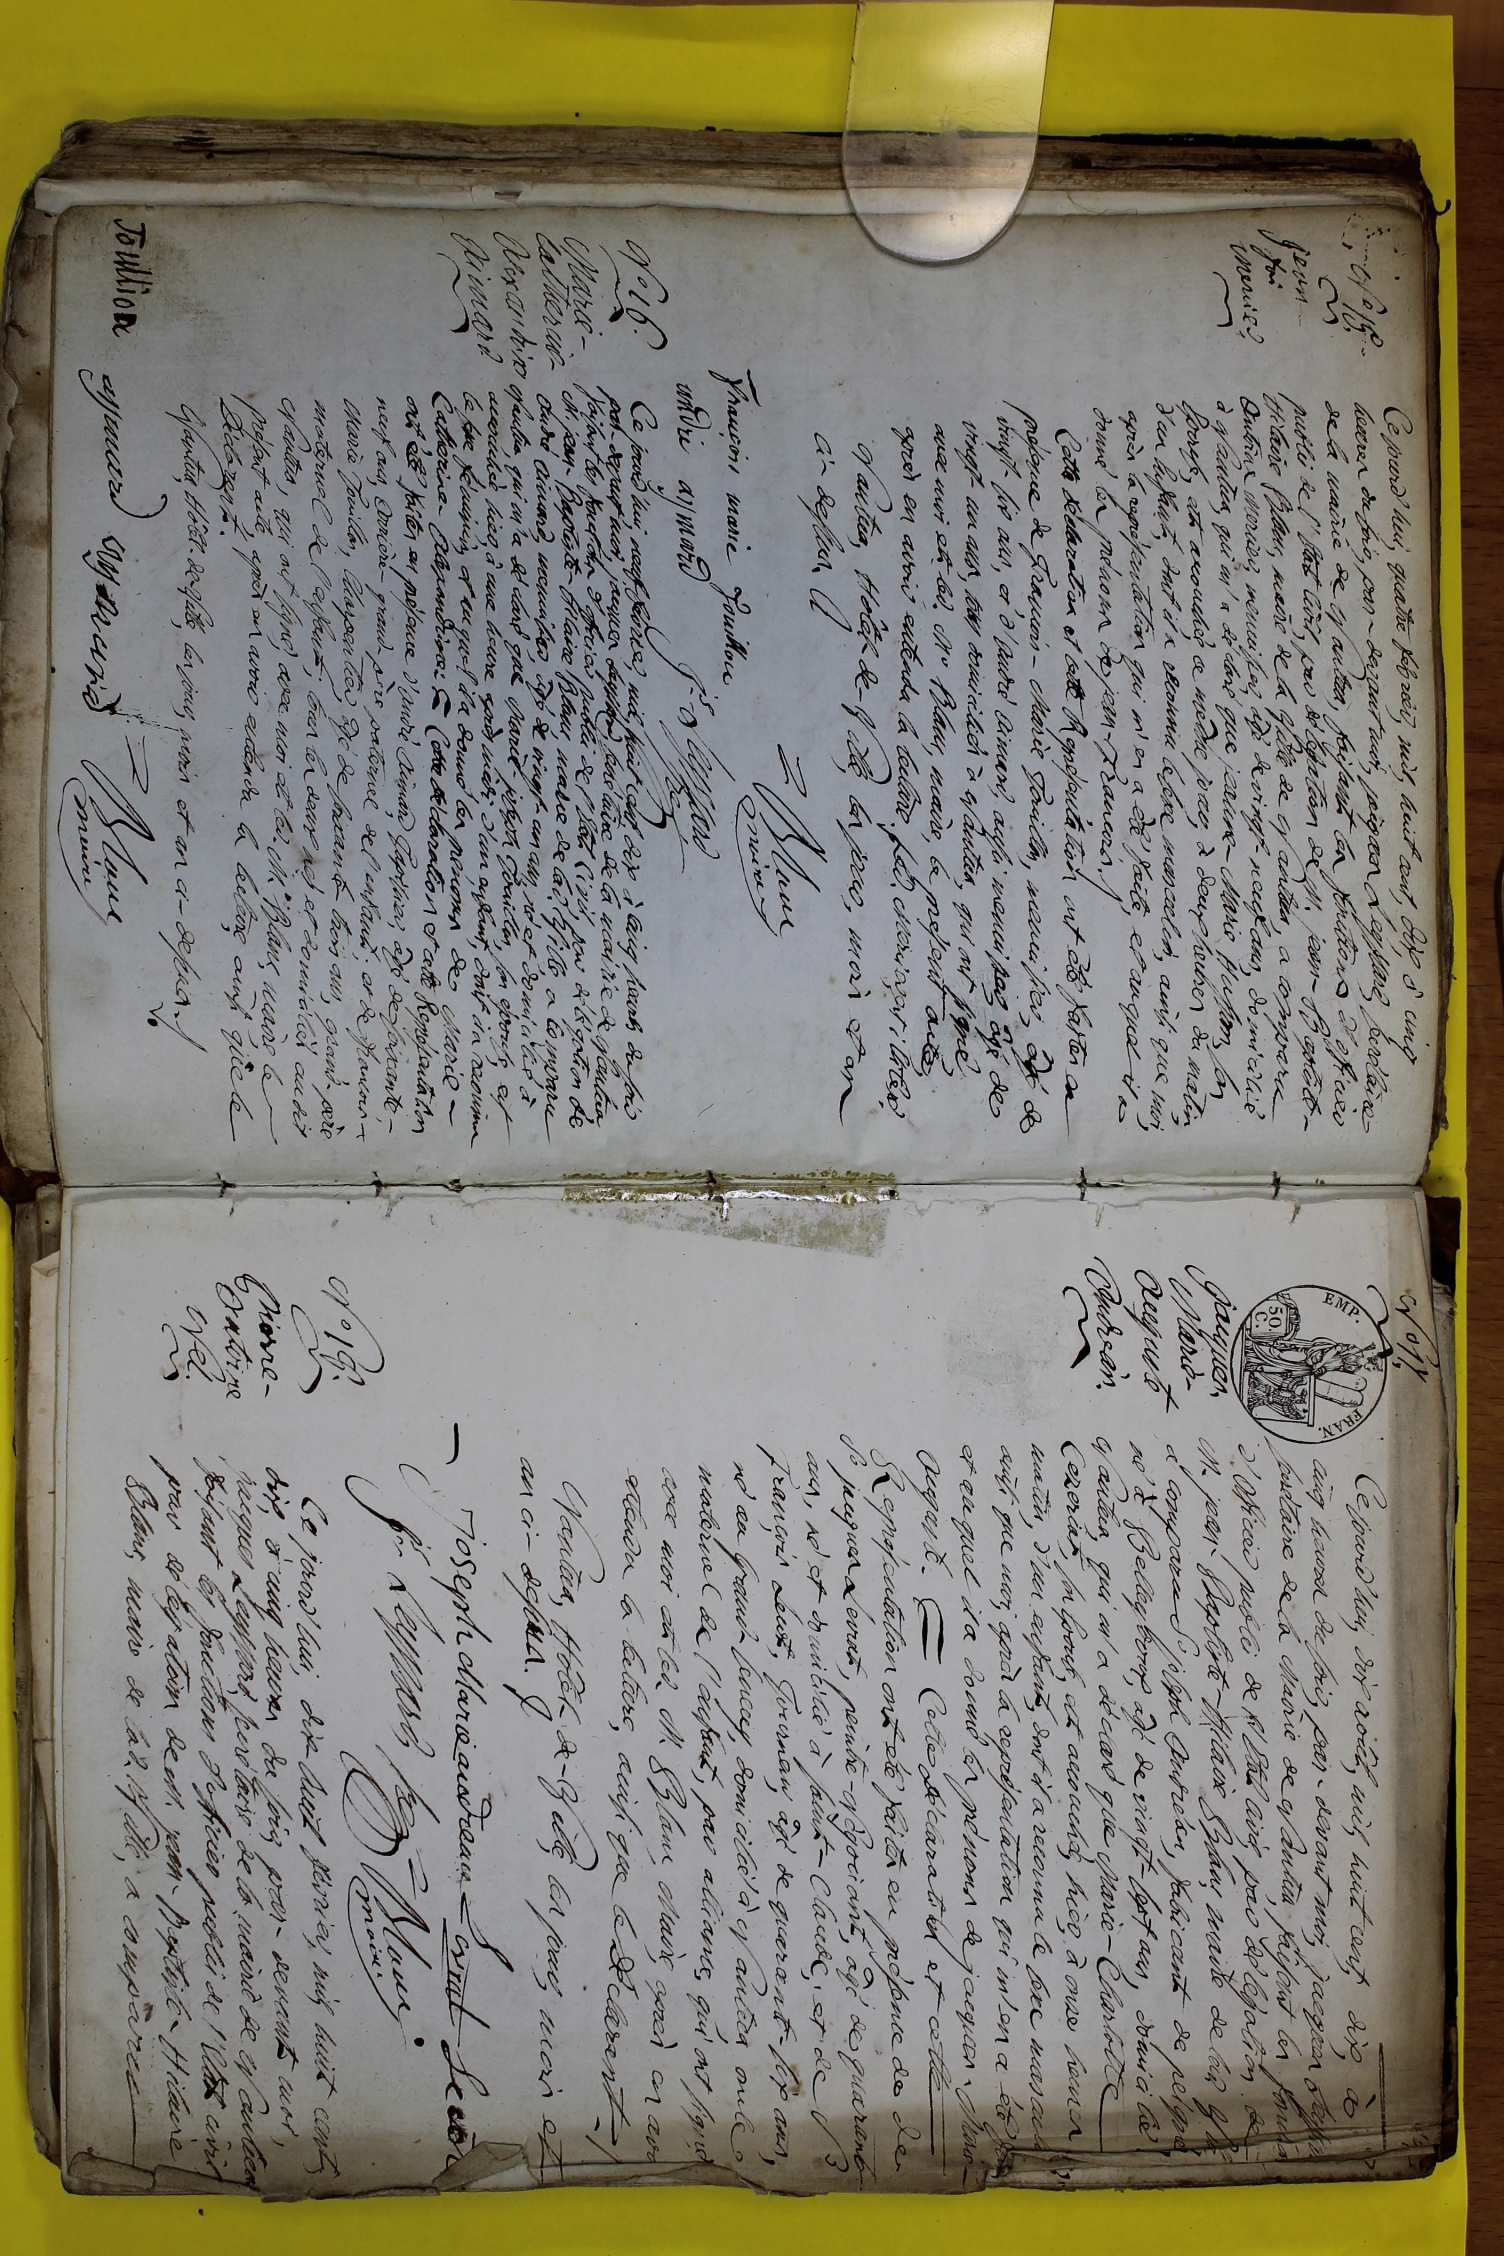 N° 15.
Jean-
François
Mercier.
Cejourd'hui, quatre février, mil, huit cent, dix à cinq
heures du soir, par-devant moi, jacques Leyssard, secrétaire
de la mairie de Nantua, faisant les fonctions d'officier
public de l'État Civil, par délégation de M. jean-Baptiste-
Hilaire Blanc, maire de la Ville de Nantua, a comparu
Antoine Mercier, menuisier, âgé de vingt-neuf ans, domicilié
à Nantua, qui m'a déclaré que jeanne-Marie Tuffon, son
épouse, est accouchée ce même jour, à deux heures du matin
d'un enfant, dont il a reconnu le sexe masculin, ainsi que moi,
après la représentation qui m'en a été faite, et auquel il a
donné les prénoms de jean-François.
Cette déclaration et cette Représentation ont été faites en
présence de François-Marie Touillon, menuisier, âgé de
vingt-six ans, et d'André aimard, aussi menuisier, âgé de
vingt un ans, tous domiciliés à Nantua, qui ont signé
avec moi et led. M. Blanc, maire, le présent acte,
après en avoir entendu la lecture. led. Mercier, illitéré
Nantua, Hôtel-de-Ville, les jour, mois et an
ci-dessus.
François marie Touillon Blanc
maire
andré aymard Jes Leyssard Sre
N° 16.
Marie-
Catherine-
Alexandrine
Aimard
Ce jourd'hui neuf février, mil huit cent dix à cinq heures du soir
par-devant moi, jacques Leyssard, secrétaire de la mairie de Nantua
faisant les fonctions d'officier public de l'État Civil, par délégation de
M. jean-Baptiste-Hilaire Blanc, maire de lad. Ville a comparu
André aimard, menuisier, âgé de vingt-un ans, né et domicilié à
Nantua, qui m'a déclaré que Marie-josephe Touillon, son épouse, est
accouchée hier, à une heure après midi, d'un enfant, dont il a reconnu
le sexe féminin, et auquel il a donné les prénoms de Marie-
Catherine-Alexandrine. Cette déclaration et cette Représentation
ont été faites en présence d'André Aimard, âgé de soixante-
neuf ans, grand père paternel de l'enfant, et de François-
Marie Touillon, charpentier, âgé de soixante-trois ans, grand-père
maternel de l'enfant, tous les deux nés et domiciliés audit
Nantua, qui ont signé, avec moi et led. M. Blanc, maire le
présent acte, après en avoir entendu la lecture, ainsi que le
Déclarant.
Nantua, Hôtel-de-Ville, les jour, mois et an ci-dessus.
Touillion aymard aymard Blanc
maire
N° 17.
EMP. FRAN.
50.
C.
Jacques,
Marie-
Auguste
Andréan.
Cejourd'hui, dix février, mil, huit cent, dix à
cinq heures du soir, par-devant moi, jacques
secrétaire de la Mairie de Nantua, faisant les
d'Officier public de l'État civil, par délégation de
M. jean-Baptiste-Hilaire Blanc, maire de lad. Ville
a comparu S. joseph Andréan, fabricant de peignes
né à Belleydoux, âgé de vingt-sept ans, domicilié
Nantua, qui m'a déclaré que Marie-Charlotte
son épouse, est accouchée, hier, à onze heures
matin, d'un enfant, dont il a reconnu le sexe masculin
ainsi que moi, après la représentation qui m'en a été
et auquel il a donné les prénoms de jacques-Marie-
Auguste. Cette déclaration et cette
Représentation ont été faites en présence de
S. jacques, négociant, âgé de quarante
ans, né et domicilié à saint-Claude, et de S.
François, âgé de quarante-six ans,
domicilié à Nantua oncle
maternel de l'enfant, par alliance, qui ont signé
avec moi et led. M. Blanc, Maire, après en avoir
entendu la lecture, ainsi que le Déclarant.
Nantua, Hôtel-de-Ville, les jour, mois et
an ci-dessus.
Joseph Marie andrean
Jes Leyssard Sre Blanc
maire
N° 18.
Pierre-
Antoine
Ce jourd'hui dix huit février, mil, huit cent,
dix, à cinq heures du soir, par-devant moi,
jacques Leyssard, secrétaire de la mairie de Nantua
faisant les fonctions d'officier public de l'État civil
par délégation de M. jean-Baptiste-Hilaire
Blanc, maire de lad. Ville, a comparu